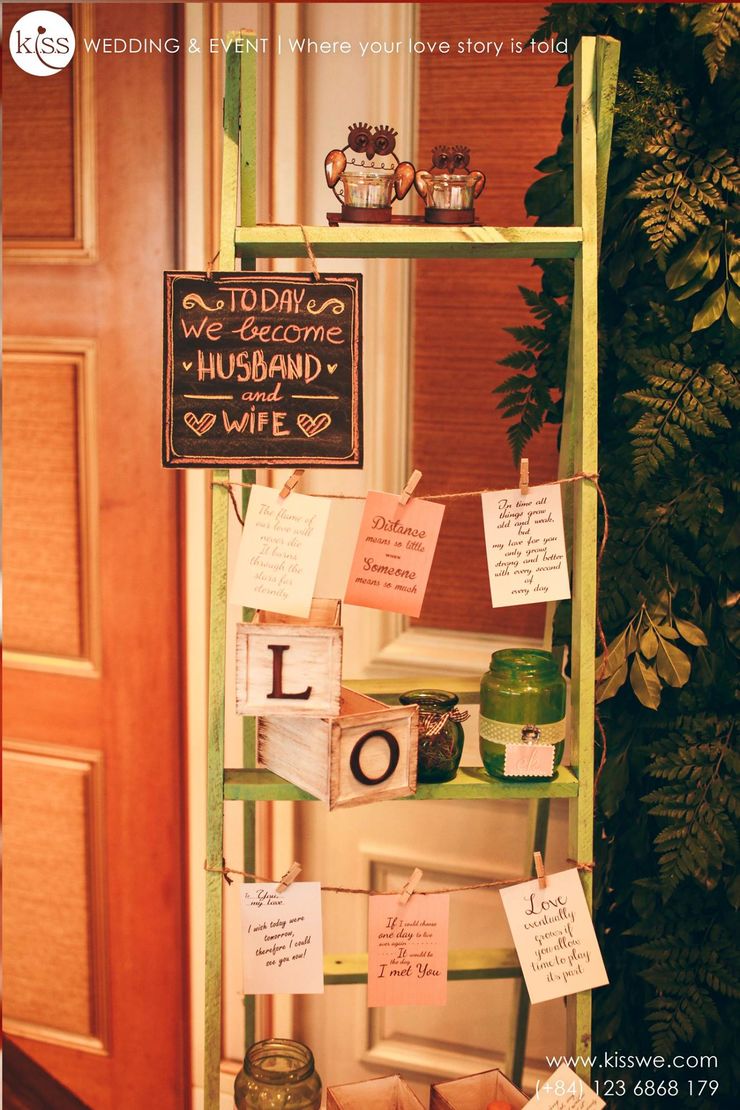 kiss WEDDING & EVENT | Where your love story is told
TODAY
We become
HUSBAND
and
WIFE
The flame of
our love will
never die
It burns
through the
stars for
eternity
Distance
means so little
WHEN
Someone
means so much
In time all
things grow
old and weak,
but
my love for you
only grow
strong and better
with every second
of
every day
L
O
To: You
my love
I wish today were
tomorrow,
therefore I could
see you now!
If I could choose
one day to live
over again
It would be
the day
I met You
Love
eventually
grows if
you allow
time to play
its part
www.kisswe.com
(+84) 123 6868 179